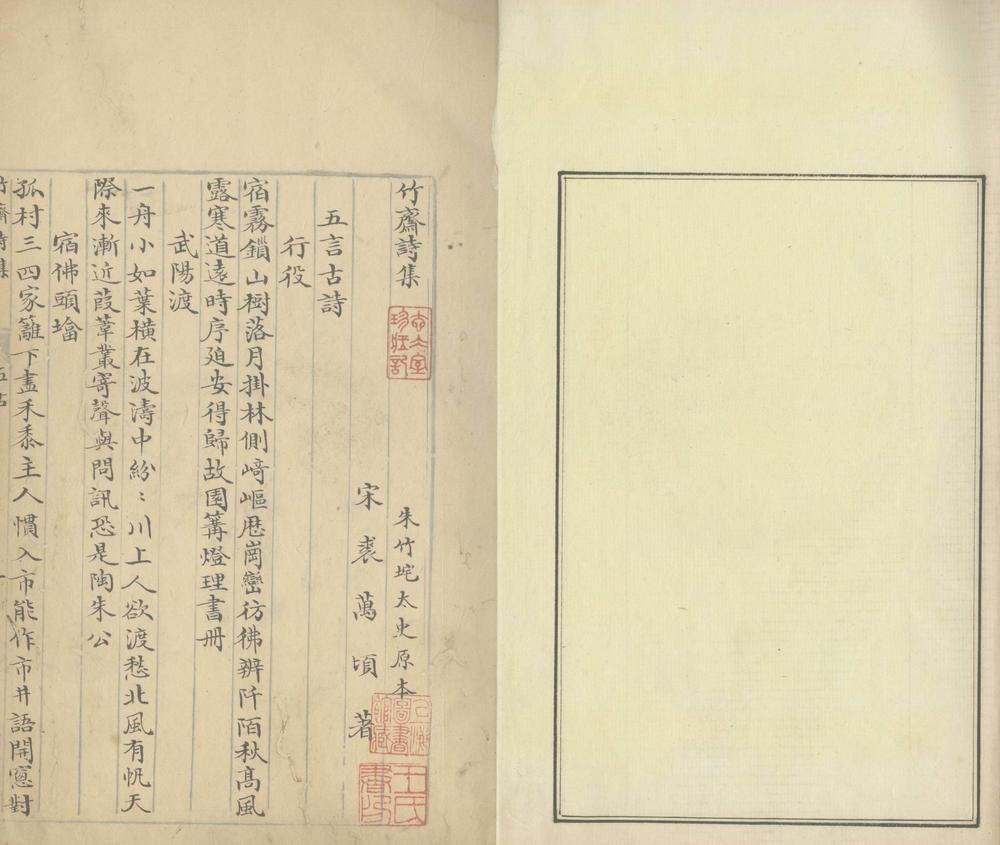 竹齋詩集
朱竹垞太史原本
宋裘萬頃著
五言古詩
行役
宿霧鎖山樹落月掛林側﨑嶇歴崗巒彷彿辨阡陌秋髙風
露寒道遠時序廹安得歸故園篝燈理書册
武陽渡
一舟小如葉橫在波濤中紛〻川上人欲渡愁北風有帆天
際來漸近葭葦叢寄聲與問訊恐是陶朱公
宿佛頭墖
孤村三四家籬下盡禾黍主人慣入市能作市井語開窓對
竹齋詩集
五古